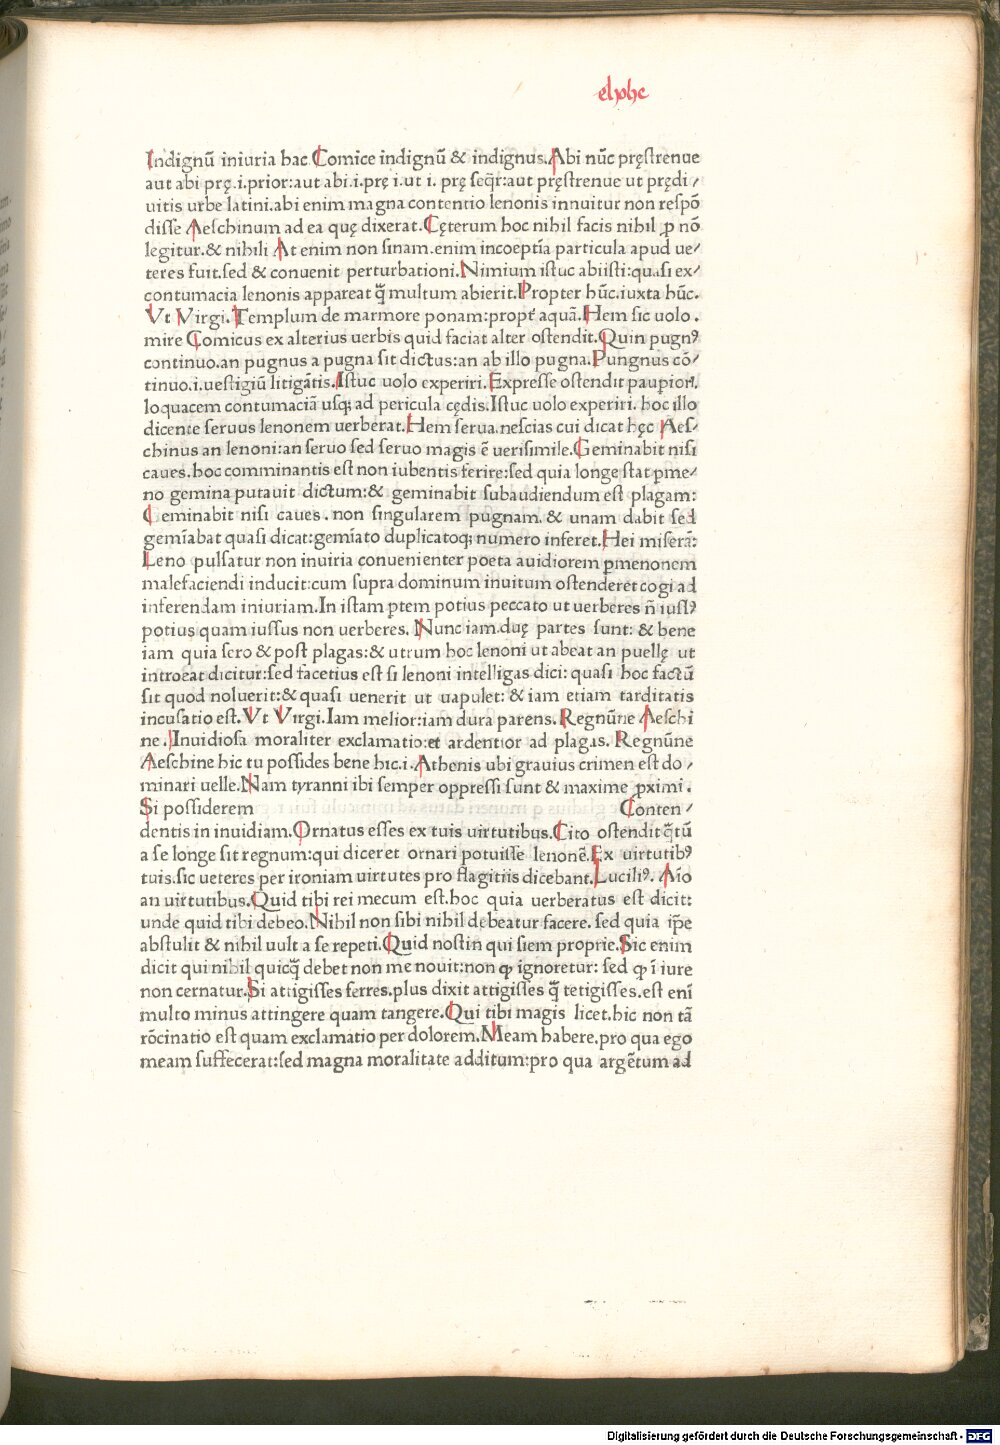 Indignũ iniuria hac. Comice indignũ & indignus. Abi nũc pręstrenue
aut abi prę .i. prior: aut abi .i. prę i. ut i. prę seqr̃: aut pręstrenue ut prędi/
uitis urbe latini. abi enim magna contentio lenonis innuitur non respõ
disse Aeschinum ad ea quę dixerat. Cęterum hoc nihil facis nihil ꝓ nõ
legitur. & nihili At enim non sinam. enim incoeptĩa particula apud ue/
teres fuit. sed & conuenit perturbationi. Nimium istuc abiisti: quasi ex/
contumacia lenonis appareat q̃ multum abierit. Propter hũc. iuxta hũc.
Vt Virgi. Templum de marmore ponam: propt̃ aquã. Hem sic uolo.
mire Comicus ex alterius uerbis quid faciat alter ostendit. Quin pugnꝰ
continuo. an pugnus a pugna sit dictus: an ab illo pugna. Pungnus cõ/
tinuo .i. uestigiũ litigãtis. Istuc uolo experiri. Expresse ostendit paupioꝝ.
loquacem contumaciã usqꝫ ad pericula cędis. Istuc uolo experiri. hoc illo
dicente seruus lenonem uerberat. Hem serua. nescias cui dicat hęc Aes/
chinus an lenoni: an seruo sed seruo magis ẽ uerisimile. Geminabit nisi
caues. hoc comminantis est non iubentis ferire: sed quia longe stat ꝑme/
no gemina putauit dictum: & geminabit subaudiendum est plagam:
Geminabit nisi caues. non singularem pugnam. & unam dabit sed
gemĩabat quasi dicat: gemĩato duplicatoqꝫ numero inferet. Hei miserã:
Leno pulsatur non inuiria conuenienter poeta auidiorem ꝑmenonem
malefaciendi inducit: cum supra dominum inuitum ostenderet cogi ad
inferendam iniuriam. In istam ꝑtem potius peccato ut uerberes ñ iussꝰ
potius quam iussus non uerberes. Nunc iam. duę partes sunt: & bene
iam quia sero & post plagas: & utrum hoc lenoni ut abeat an puellę ut
introeat dicitur: sed facetius est si lenoni intelligas dici: quasi hoc factũ
sit quod noluerit: & quasi uenerit ut uapulet: & iam etiam tarditatis
incusatio est. Vt Virgi. Iam melior: iam dura parens. Regnũne Aeschi
ne. Inuidiosa moraliter exclamatio: et ardentior ad plagas. Regnũne
Aeschine hic tu possides bene hic .i. Athenis ubi grauius crimen est do/
minari uelle. Nam tyranni ibi semper oppressi sunt & maxime ꝓximi.
Si possiderem Conten/
dentis in inuidiam. Ornatus esses ex tuis uirtutibus. Cito ostendit q̃tũ
a se longe sit regnum: qui diceret ornari potuisse lenonẽ. Ex uirtutibꝰ
tuis. sic ueteres per ironiam uirtutes pro flagitiis dicebant. Luciliꝰ. Aio
an uirtutibus. Quid tibi rei mecum est. hoc quia uerberatus est dicit:
unde quid tibi debeo. Nihil non sibi nihil debeatur facere. sed quia ip̃e
abstulit & nihil uult a se repeti. Quid nostin qui siem proprie. Sic enim
dicit qui nihil quicq̃ debet non me nouit: non ꝙ ignoretur: sed ꝙ ĩ iure
non cernatur. Si attigisses ferres. plus dixit attigisses q̃ tetigisses. est enĩ
multo minus attingere quam tangere. Qui tibi magis licet. hic non tã
rõcinatio est quam exclamatio per dolorem. Meam habere. pro qua ego
meam suffecerat: sed magna moralitate additum: pro qua argẽtum ad
Digitalisierung gefördert durch die Deutsche Forschungsgemeinschaft - DFG